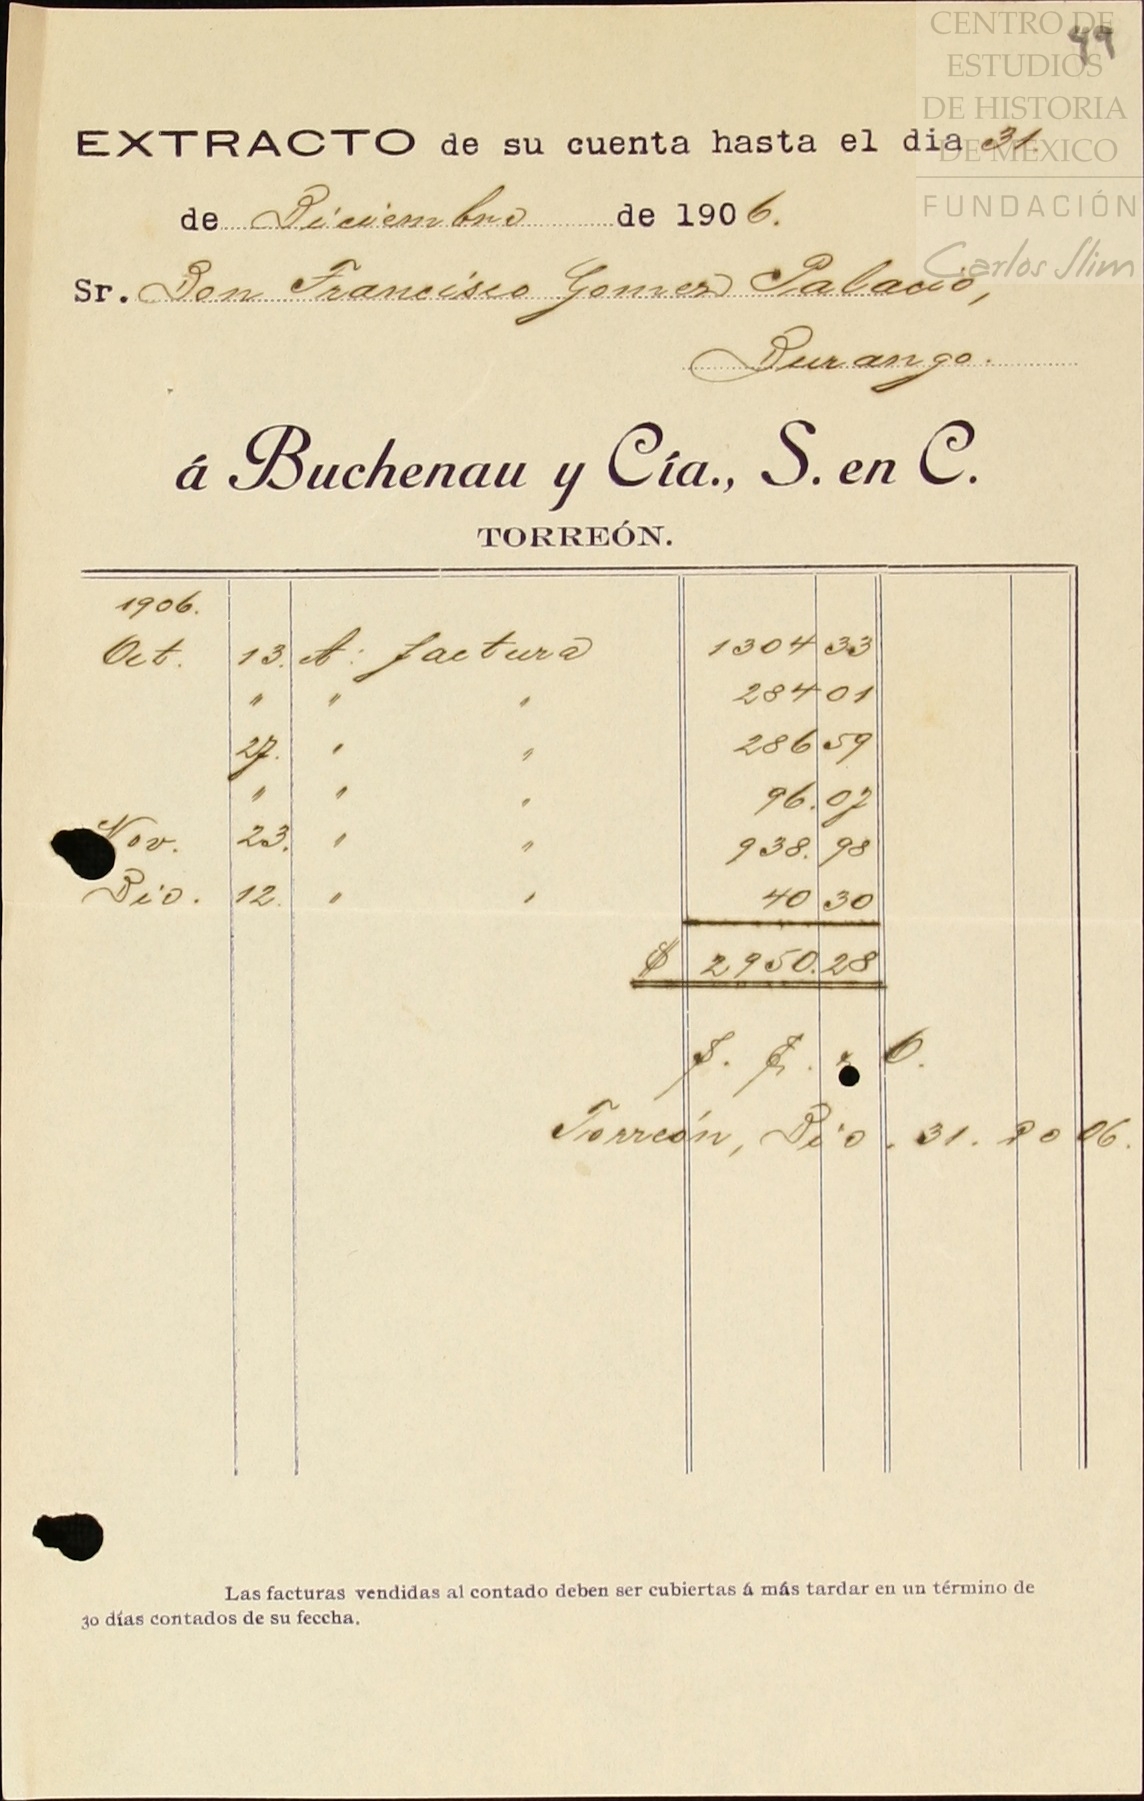 49
CENTRO DE
ESTUDIOS
DE HISTORIA
DE MÉXICO
FUNDACIÓN
Carlos Slim
EXTRACTO de su cuenta hasta el dia 31.
de Diciembre de 1906.
Sr. Don Francisco Gomez Palacio,
Durango.
á Buchenau y Cía., S. en C.
TORREÓN.
1906.
Oct. 13. A: factura 1304 33
" " " 284 01
27. " " 286 59
" " " 96. 07
Nov. 23. " " 938. 98
Dic. 12. " " 40 30
$ 2950. 28
S. E. O.
Torreón, Dic. 31. 06.
Las facturas vendidas al contado deben ser cubiertas á más tardar en un término de
30 días contados de su feccha.